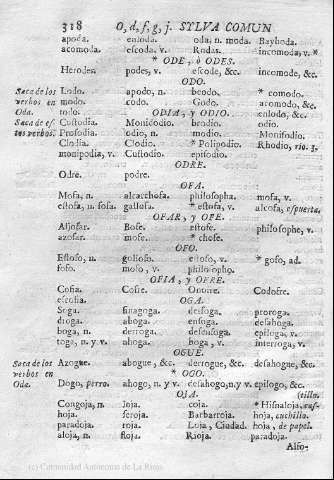 318 O, d, f, g, j. SYLVA COMUN
apoda. enloda. oda, n. moda. Bayboda.
acomoda. escoda. v. Rodas. incomoda, v. *
* ODE, ò ODES.
Herodes. podes, v. escode, &c. incomode, &c.
ODO.
Saca de los Lodo. apodo, n. beodo. * comodo.
verbos en modo. codo. Godo. acomodo, &c.
Oda. todo. ODIA, y ODIO. enlodo, &c.
Saca de es- Custodia. Monicodio. brodio. odio.
tos verbos. Prosodia. odio, n. modio. Monifodio.
Clodia. Clodio. * Polipodio. Rhodio, rio. 3.
monipodia, v. Custodio. episodio.
ODRE.
Odre. podre.
OFA.
Mofa, n. alcachofa. philosopha. mofa, v.
estofa, n. sofa. gallofa. * estofa, v. alcofa, espuerta.
OFAR, y OFE.
Aljofar. Bofe. estofe. philosophe, v.
azofar. mofe. * chofe.
OFO.
Estofo, n. gallofo. estofo, v. * gofo, ad.
fofo. mofo, v. philosopho.
OFIA, y OFRE.
Cofia. Cofre. Onofre. Godofre.
escofia. OGA.
Soga. sinagoga. desfoga. proroga.
droga. aboga. ensoga. desahoga.
boga, n. derroga. desensoga. epiloga, v.
toga, n. y v. ahoga. boga, v. interroga, v.
OGUE.
Saca de los Azogue. abogue, &c. derrogue, &c. desahogue, &c.
verbos en * OGO.
Oda. Dogo, perro. ahogo, n. y v. desahogo, n. y v. epilogo, &c.
OJA. (tillo.
Congoja, n. Loja. coja. * Hisnaloja, cas-
hoja. feroja. Barbarroja. hoja, cuchilla.
paradoja. roja. Loja, Ciudad. hoja, de papel.
aloja, n. floja. Rioja. paradoja.
Alfo-
(c) Comunidad Autónoma de La Rioja